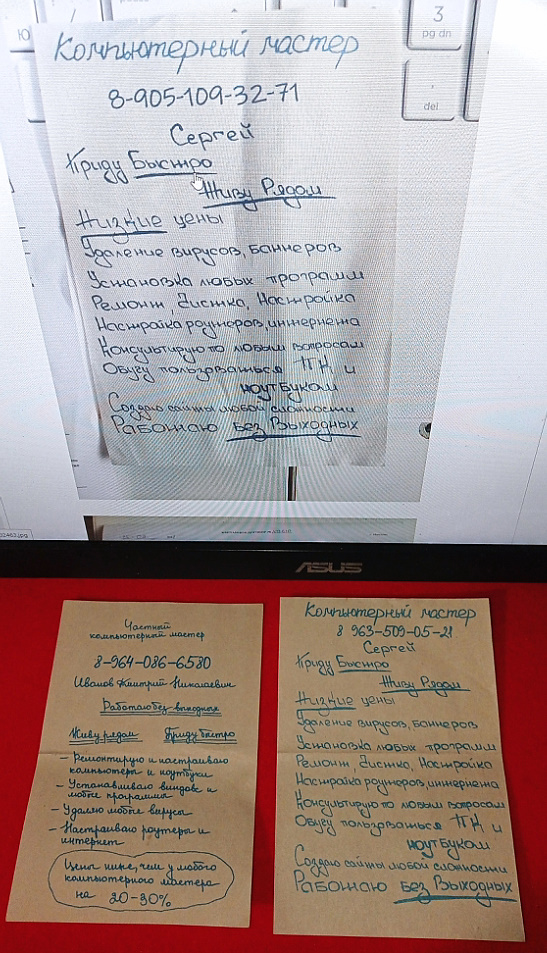 Ю
/
3
pg dn
.
del
Компьютерный мастер
8-905-109-32-71
Сергей
Приду Быстро
Живу Рядом
Низкие цены
Удаление вирусов, баннеров
Установка любых программ
Ремонт, Чистка, Настройка
Настройка роутеров, интернета
Консультирую по любым вопросам
Обучу пользоваться ПК и
ноутбуком
Создаю сайты любой сложности
Работаю Без Выходных
ASUS
Частный
компьютерный мастер
8-964-086-6580
Иванов Дмитрий Николаевич
Работаю без выходных
Живу рядом Приду быстро
- Ремонтирую и настраиваю
компьютеры и ноутбуки
- Устанавливаю виндовс и
любые программы
- Удаляю любые вирусы
- Настраиваю роутеры и
интернет
Цены ниже, чем у любого
компьютерного мастера
на 20-30%
Компьютерный мастер
8 963-509-05-21
Сергей
Приду Быстро
Живу Рядом
Низкие цены
Удаление вирусов, баннеров
Установка любых программ
Ремонт, Чистка, Настройка
Настройка роутеров, интернета
Консультирую по любым вопросам
Обучу пользоваться ПК и
ноутбуком
Создаю сайты любой сложности
Работаю Без Выходных